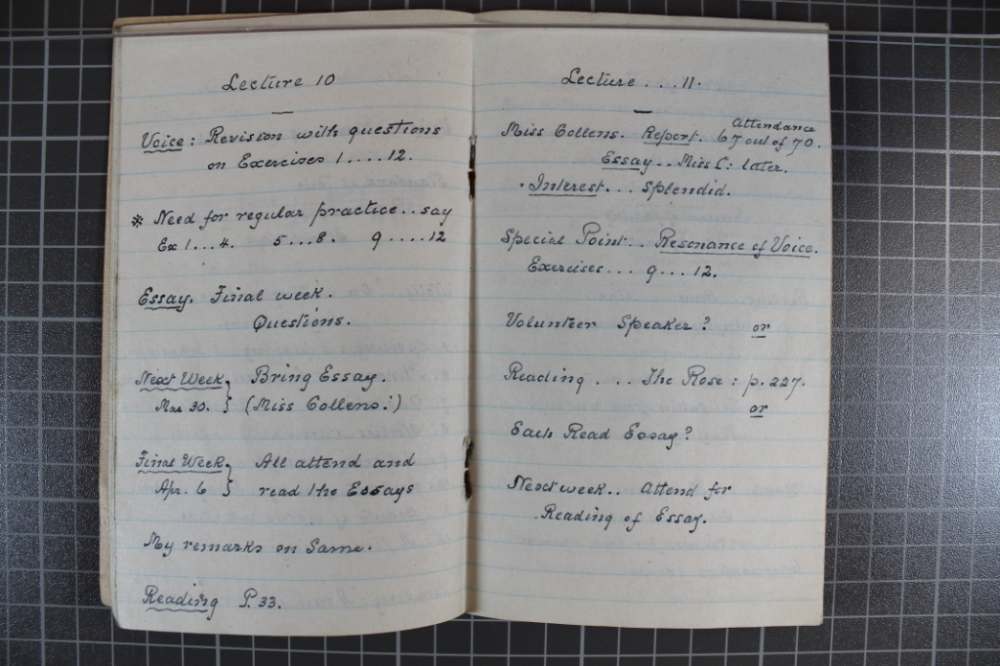 Lecture 10
Voice: Revision with questions
on Exercises 1....12.
* Need for regular practice.. say
Ex 1...4. 5...8. 9....12
Essay. Final week.
Questions.
Next Week } Bring Essay.
Mar 30. } (Miss Collens!)
Final Week } All attend and
Apr. 6 } read the Essays
My remarks on Same.
Reading P. 33.
Lecture ... 11.
Attendance
Miss Collens. Report. 67 out of 70.
Essay.. Miss C: later.
. Interest... Splendid.
Special Point.. Resonance of Voice.
Exercises... 9...12.
Volunteer Speaker? or
Reading .... The Rose: p. 227.
or
Each Read Essay?
Next week.. Attend for
Reading of Essay.